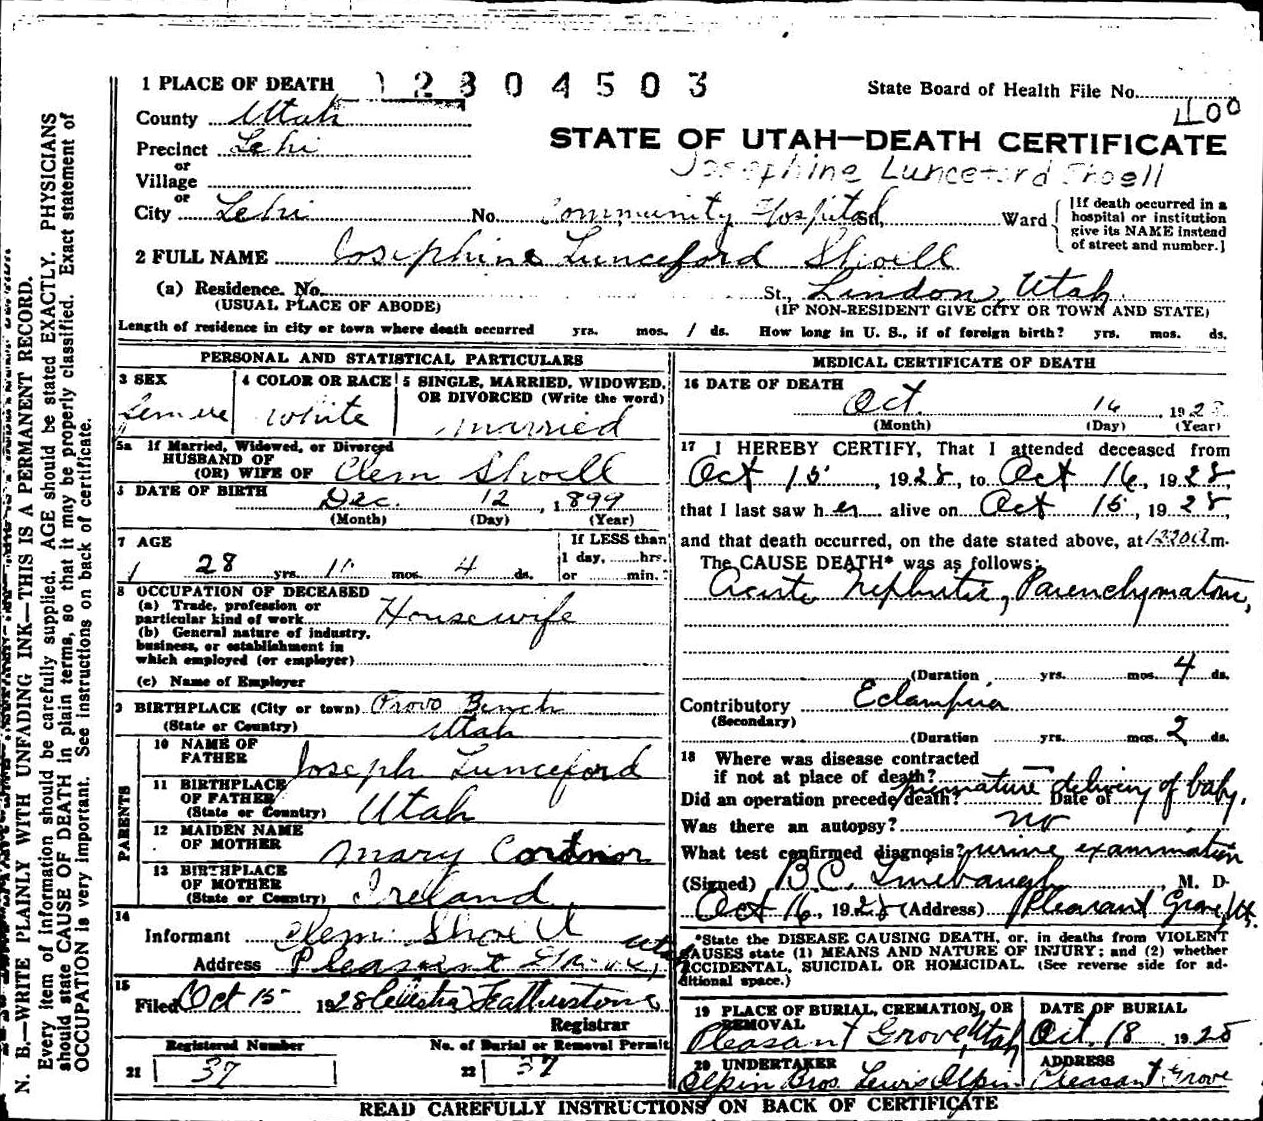 1 PLACE OF DEATH 12804503 State Board of Health File No. 400
County Utah
STATE OF UTAH—DEATH CERTIFICATE
Precinct Lehi
Josephine Lunceford Shoell
or
Village
or
City Lehi No. Community Hospital St. Ward
[If death occurred in a hospital or institution give its NAME instead of street and number.]
2 FULL NAME Josephine Lunceford Shoell
(a) Residence. No. St., Lindon, Utah
(USUAL PLACE OF ABODE) (IF NON-RESIDENT GIVE CITY OR TOWN AND STATE)
Length of residence in city or town where death occurred yrs. mos. 1 ds. How long in U. S., if of foreign birth? yrs. mos. ds.
PERSONAL AND STATISTICAL PARTICULARS
3 SEX 4 COLOR OR RACE 5 SINGLE, MARRIED, WIDOWED, OR DIVORCED (Write the word)
White Married
5a If Married, Widowed, or Divorced
HUSBAND OF
(OR) WIFE OF Clem Shoell
DATE OF BIRTH Dec. 12, 1899
(Month) (Day) (Year)
7 AGE If LESS than
28 yrs. mos. 4 ds. 1 day, hrs.
or min.
8 OCCUPATION OF DECEASED
(a) Trade, profession or
particular kind of work Housewife
(b) General nature of industry,
business, or establishment in
which employed (or employer)
(c) Name of Employer
9 BIRTHPLACE (City or town) Provo Bench
(State or Country) Utah
PARENTS
10 NAME OF
FATHER Joseph Lunceford
11 BIRTHPLACE
OF FATHER Utah
(State or Country)
12 MAIDEN NAME
OF MOTHER Mary
13 BIRTHPLACE
OF MOTHER Ireland
(State or Country)
14
Informant Clem Shoell
Address Pleasant Grove, Utah
15
Filed Oct 15 1928 Celestia Featherstone
Registrar
Registered Number No. of Burial or Removal Permit
21 37 22 37
MEDICAL CERTIFICATE OF DEATH
16 DATE OF DEATH
Oct. 16, 1928
(Month) (Day) (Year)
17 I HEREBY CERTIFY, That I attended deceased from
Oct 15, 1928, to Oct 16, 1928,
that I last saw her alive on Oct 15, 1928,
and that death occurred, on the date stated above, at m.
The CAUSE DEATH* was as follows:
Acute Nephritis, Parenchymatous,
(Duration yrs. mos. 4 ds.
Contributory Eclampsia
(Secondary)
(Duration yrs. mos. 2 ds.
18 Where was disease contracted
if not at place of death?
Did an operation precede death? premature delivery of baby. Date of
Was there an autopsy? no
What test confirmed diagnosis? urine examination
(Signed) B.C. Linebaugh M. D.
Oct 16, 1928 (Address) Pleasant Grove, Ut.
*State the DISEASE CAUSING DEATH, or, in deaths from VIOLENT
CAUSES state (1) MEANS AND NATURE OF INJURY; and (2) whether
ACCIDENTAL, SUICIDAL OR HOMICIDAL. (See reverse side for ad-
ditional space.)
19 PLACE OF BURIAL, CREMATION, OR REMOVAL DATE OF BURIAL
Pleasant Grove, Utah Oct. 18 1928
20 UNDERTAKER ADDRESS
Olpin Bros. Lewis Olpin Pleasant Grove
READ CAREFULLY INSTRUCTIONS ON BACK OF CERTIFICATE
N. B.—WRITE PLAINLY WITH UNFADING INK—THIS IS A PERMANENT RECORD.
Every item of information should be carefully supplied. AGE should be stated EXACTLY. PHYSICIANS
should state CAUSE OF DEATH in plain terms, so that it may be properly classified. Exact statement of
OCCUPATION is very important. See instructions on back of certificate.